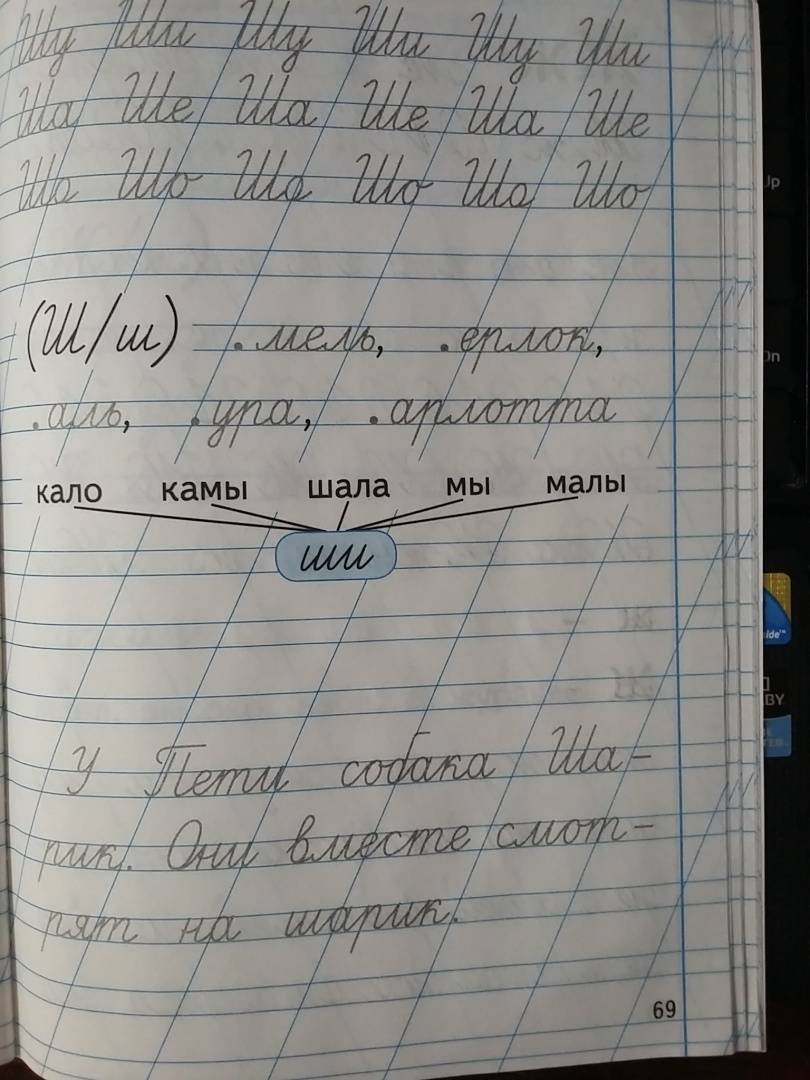 Шу Ши Шу Ши Шу Ши
Ша Ше Ша Ше Ша Ше
Шо Шо Шо Шо Шо Шо
(Ш/ш) .мель, .ерлок,
.аль, .ура, .арлотта
кало камы шала мы малы
ши
У Пети собака Ша-
рик. Они вместе смот-
рят на шарик.
69